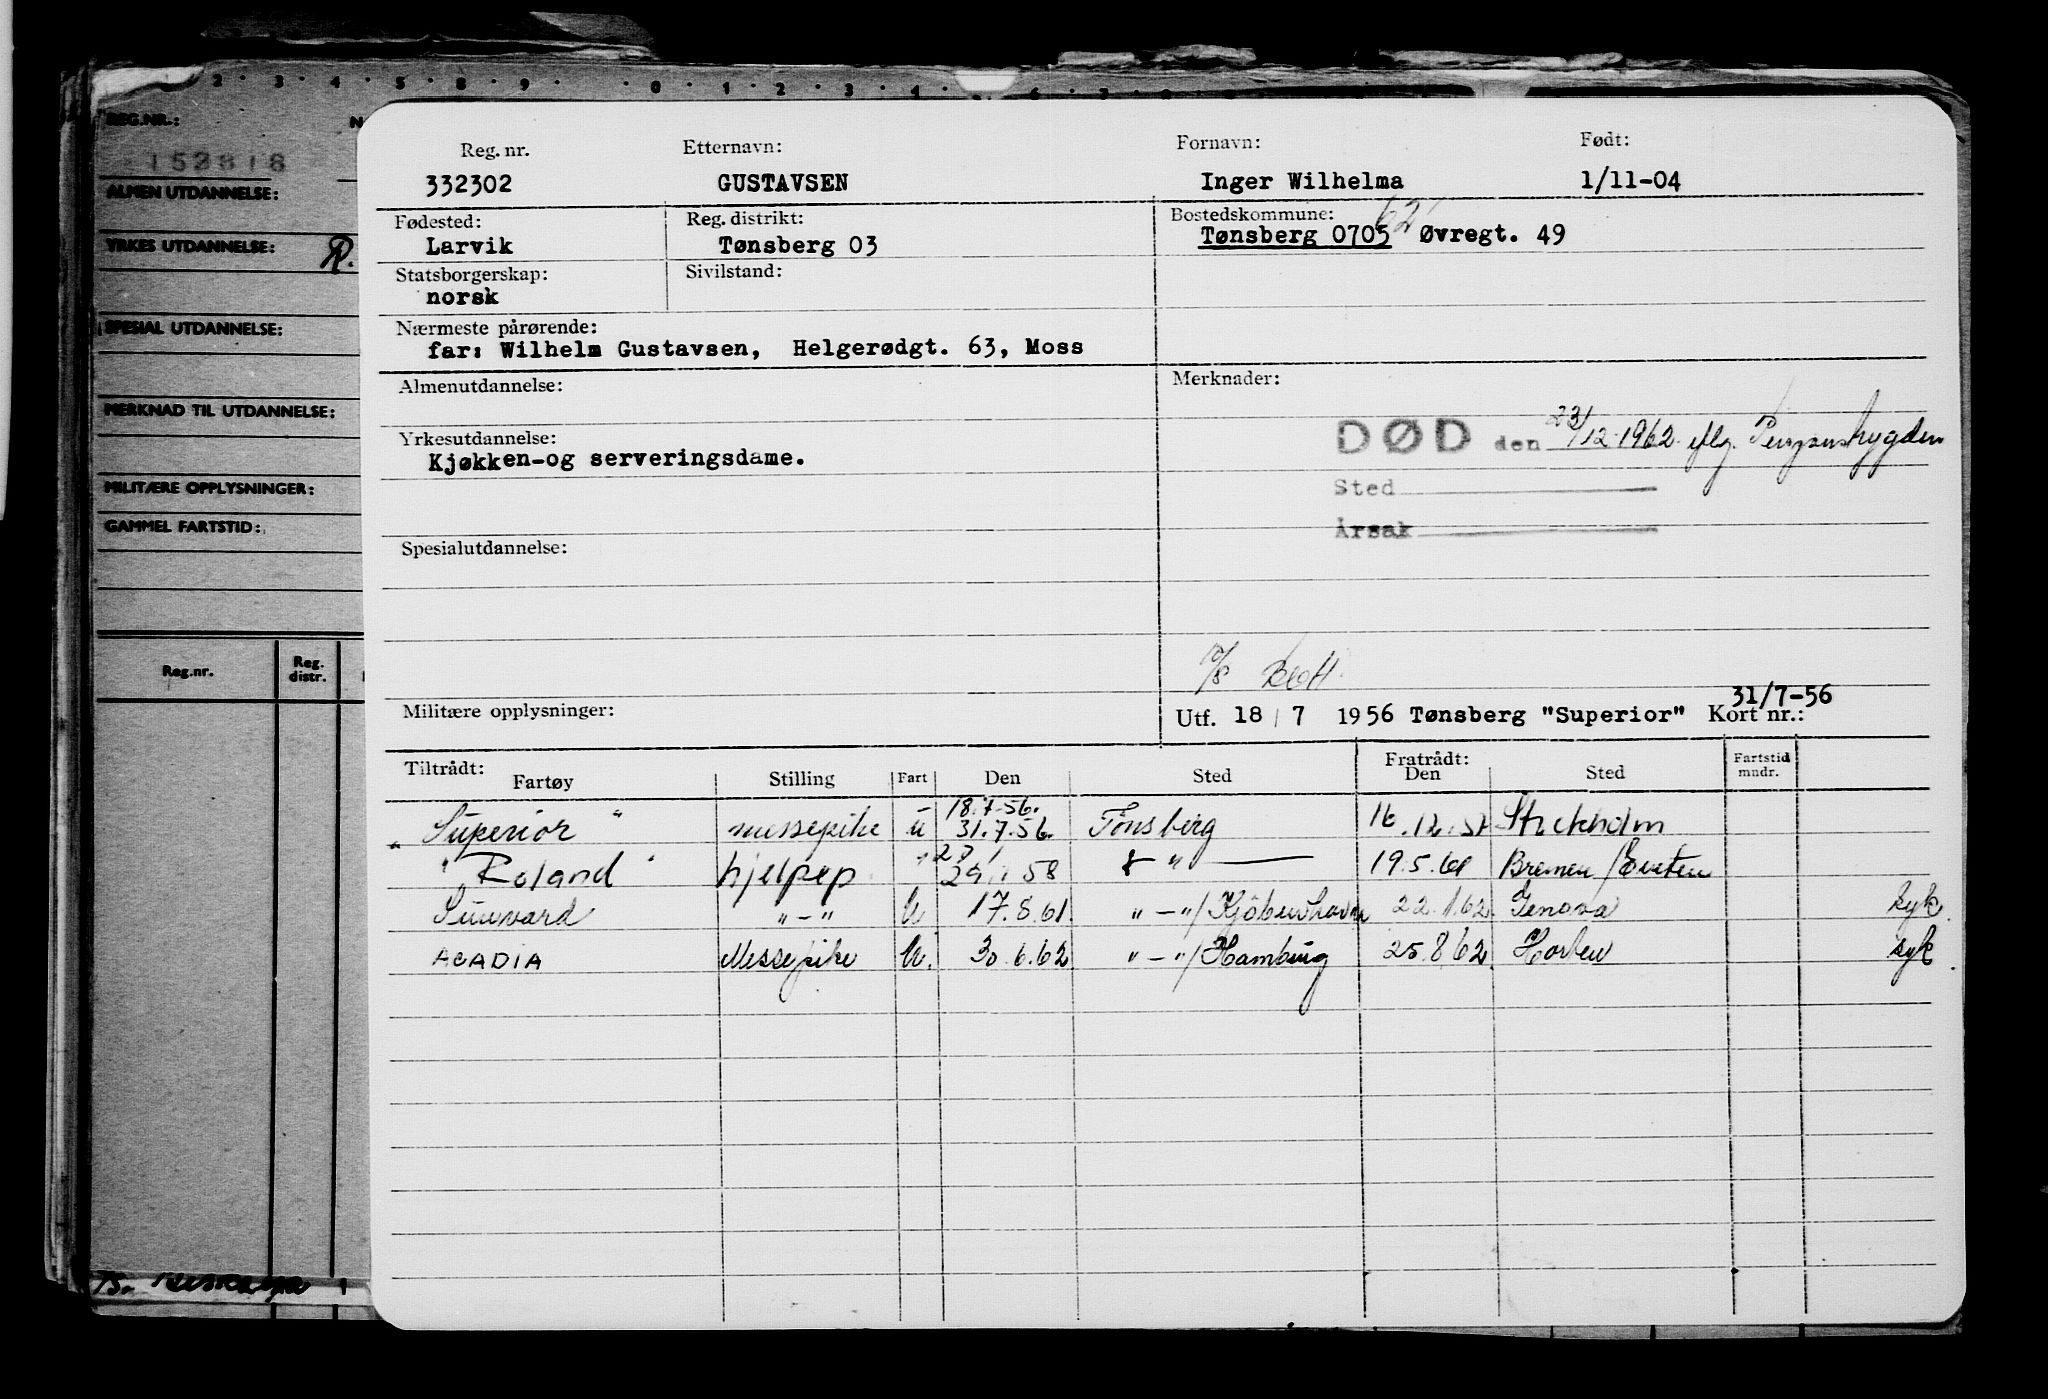 2 · 3 · 4 · 5 · 8 · 9 · 0 · 1 · 2 · 3 · 4
REG.NR.:
152818
ALMEN UTDANNELSE:
YRKES UTDANNELSE: R.
SPESIAL UTDANNELSE:
MERKNAD TIL UTDANNELSE:
MILITÆRE OPPLYSNINGER:
GAMMEL FARTSTID:
Reg.nr. Reg. distr.
Reg. nr. Etternavn: Fornavn: Født:
332302 GUSTAVSEN Inger Wilhelma 1/11-04
Fødested: Reg. distrikt: Bostedskommune: 62
Larvik Tønsberg 03 Tønsberg 0705 Øvregt. 49
Statsborgerskap: Sivilstand:
norsk
Nærmeste pårørende:
far: Wilhelm Gustavsen, Helgerødgt. 63, Moss
Almenutdannelse: Merknader:
DØD den 23/12-1962 iflg. Pensjonstrygden
Sted
Årsak
Yrkesutdannelse:
Kjøkken-og serveringsdame.
Spesialutdannelse:
31/7-56
Militære opplysninger: Utf. 18 / 7 1956 Tønsberg "Superior" Kort nr.:
Tiltrådt: Fratrådt: Fartstid
Fartøy Stilling Fart Den Sted Den Sted mndr.
18.7.56.
"Superior" messepike u 31.7.56. Tønsberg 16.12.57 Stockholm
"Roland" hjelpep " 58 " 19.5.61 Bremen
Sunvard "-" U 17.8.61. "-"/ Kjöbenhavn 22.1.62. Genova syk.
ACADIA Messepike U. 30.6.62. "-"/ Hamburg 25.8.62. Horten syk.